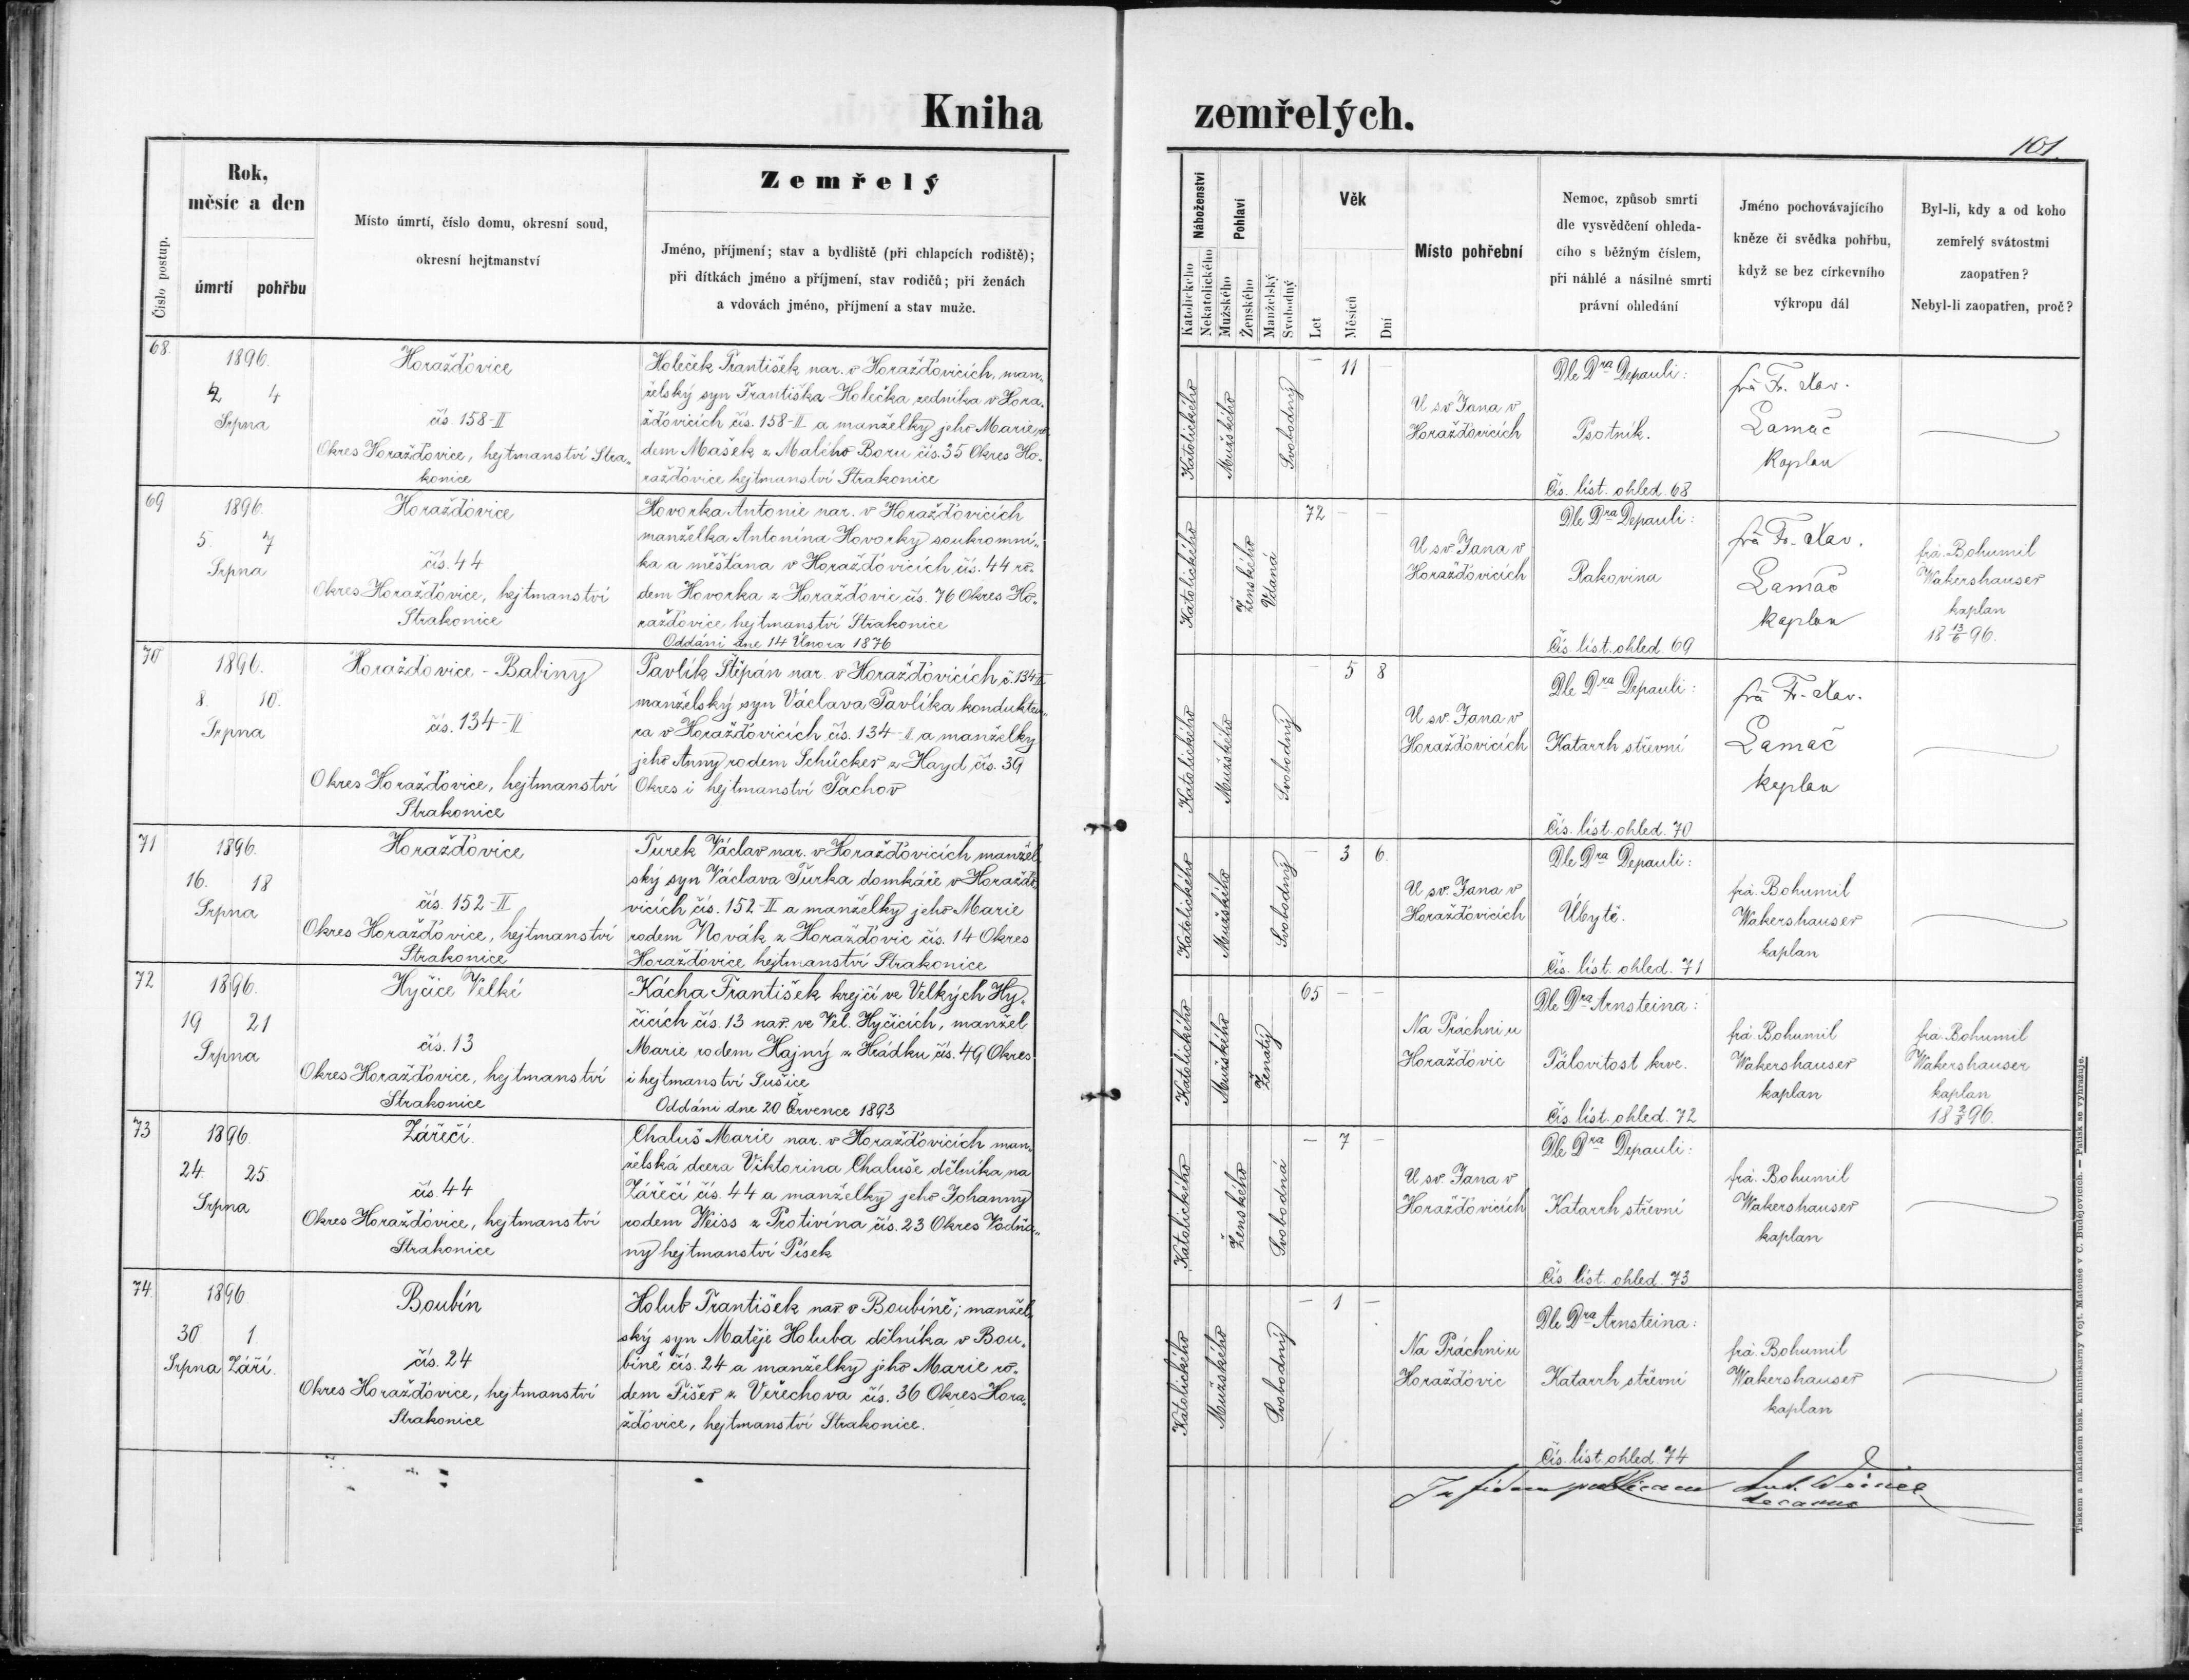 Kniha zemřelých.
101.
Číslo postup.
Rok,
měsíc a den
úmrtí pohřbu
Místo úmrtí, číslo domu, okresní soud,
okresní hejtmanství
Zemřelý
Jméno, příjmení; stav a bydliště (při chlapcích rodiště);
při dítkách jméno a příjmení, stav rodičů; při ženách
a vdovách jméno, příjmení a stav muže.
Náboženství
Katolického
Nekatolického
Pohlaví
Mužského
Ženského
Manželský
Svobodný
Věk
Let
Měsíců
Dní
Místo pohřební
Nemoc, způsob smrti
dle vysvědčení ohleda-
cího s běžným číslem,
při náhlé a násilné smrti
právní ohledání
Jméno pochovávajícího
kněze či svědka pohřbu,
když se bez církevního
výkropu dál
Byl-li, kdy a od koho
zemřelý svátostmi
zaopatřen?
Nebyl-li zaopatřen, proč?
68.
1896.
2 4
Srpna
Horažďovice
čís. 158-II
Okres Horažďovice, hejtmanství Stra-
konice
Holeček František nar. v Horažďovicích, man-
želský syn Františka Holečka zedníka v Hora-
žďovicích čís. 158-II a manželky jeho Marie ro-
dem Mašek z Malého Boru čís. 35 Okres Ho-
ražďovice hejtmanství Strakonice
Katolického
Mužského
Svobodný
– 11 –
U sv. Jana v
Horažďovicích
Dle Dra Depauli:
Psotník.
Čís. list. ohled. 68
frá Fr. Xav.
Lamač
Kaplan
69
1896.
5. 7
Srpna
Horažďovice
čís. 44
Okres Horažďovice, hejtmanství
Strakonice
Hovorka Antonie nar. v Horažďovicích
manželka Antonína Hovorky soukromní-
ka a měšťana v Horažďovicích čís. 44 ro-
dem Hovorka z Horažďovic čís. 76 Okres Ho-
ražďovice hejtmanství Strakonice
Oddáni dne 14 Února 1876
Katolického
Ženského
Vdaná
72 – –
U sv. Jana v
Horažďovicích
Dle Dra Depauli:
Rakovina
Čís. list. ohled. 69
frá Fr. Xav.
Lamač
kaplan
frá. Bohumil
Wakershauser
kaplan
18 13/6 96.
70
1896.
8. 10.
Srpna
Horažďovice - Babiny
čís. 134-II
Okres Horažďovice, hejtmanství
Strakonice
Pavlík Štěpán nar. v Horažďovicích č. 134-II
manželský syn Václava Pavlíka kondukteu-
ra v Horažďovicích čís. 134-II a manželky
jeho Anny rodem Schücker z Hayd čís. 39
Okres i hejtmanství Tachov
Katolického
Mužského
Svobodný
– 5 8
U sv. Jana v
Horažďovicích
Dle Dra Depauli:
Katarrh střevní
Čís. list. ohled. 70
frá Fr. Xav.
Lamač
kaplan
71
1896.
16. 18
Srpna
Horažďovice
čís. 152-II
Okres Horažďovice, hejtmanství
Strakonice
Turek Václav nar. v Horažďovicích manžel-
ský syn Václava Turka domkáře v Horažďo-
vicích čís. 152-II a manželky jeho Marie
rodem Novák z Horažďovic čís. 14 Okres
Horažďovice hejtmanství Strakonice
Katolického
Mužského
Svobodný
– 3 6.
U sv. Jana v
Horažďovicích
Dle Dra Depauli:
Úbytě.
Čís. list. ohled. 71
frá. Bohumil
Wakershauser
kaplan
72
1896.
19 21
Srpna
Hyčice Velké
čís. 13
Okres Horažďovice, hejtmanství
Strakonice
Kácha František krejčí ve Velkých Hy-
čicích čís. 13 nar. ve Vel. Hyčicích, manžel
Marie rodem Hajný z Hrádku čís. 49 Okres
i hejtmanství Sušice
Oddáni dne 20 Července 1893
Katolického
Mužského
Ženatý
65 – –
Na Práchni u
Horažďovic
Dle Dra Arnsteina:
Pálovitost krve.
Čís. list. ohled. 72
frá. Bohumil
Wakershauser
kaplan
frá. Bohumil
Wakershauser
kaplan
18 2/8 96.
73
1896.
24. 25.
Srpna
Zářečí.
čís. 44
Okres Horažďovice, hejtmanství
Strakonice
Chaluš Marie nar. v Horažďovicích man-
želská dcera Viktorina Chaluše dělníka na
Zářečí čís. 44 a manželky jeho Johanny
rodem Weiss z Protivína čís. 23 Okres Vodňa-
ny hejtmanství Písek
Katolického
Ženského
Svobodná
– 7 –
U sv. Jana v
Horažďovicích
Dle Dra Depauli:
Katarrh střevní
Čís. list. ohled. 73
frá. Bohumil
Wakershauser
kaplan
74.
1896
30 1.
Srpna Září.
Boubín
čís. 24
Okres Horažďovice, hejtmanství
Strakonice
Holub František nar v Boubíně; manžel-
ský syn Matěje Holuba dělníka v Bou-
bíně čís. 24 a manželky jeho Marie ro-
dem Fišer z Veřechova čís. 36 Okres Hora-
žďovice, hejtmanství Strakonice.
Katolického
Mužského
Svobodný
– 1 –
Na Práchni u
Horažďovic
Dle Dra Arnsteina:
Katarrh střevní
Čís. list. ohled. 74
frá. Bohumil
Wakershauser
kaplan
In fidem publicam
decanus
Tiskem a nákladem bisk. knihtiskárny Vojt. Matouše v Č. Budějovicích. — Patisk se vyhražuje.